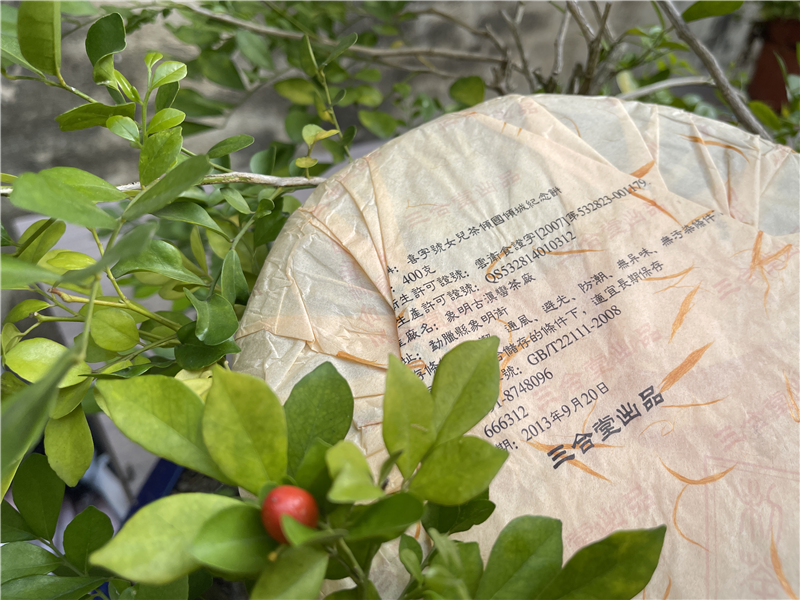 喜字號女兒茶傾國傾城紀念餅
400克
生許可證號: 雲南食證字[2007]第532823-001479
生產許可證號: QS532814010312
廠名: 象明古滇曹茶廠
勐臘縣象明街
通風、避光、防潮、無異味、無污染條件
儲存的條件下,適宜長期保存
號: GB/T22111-2008
-8748096
666312
期: 2013年9月20日
三合堂出品